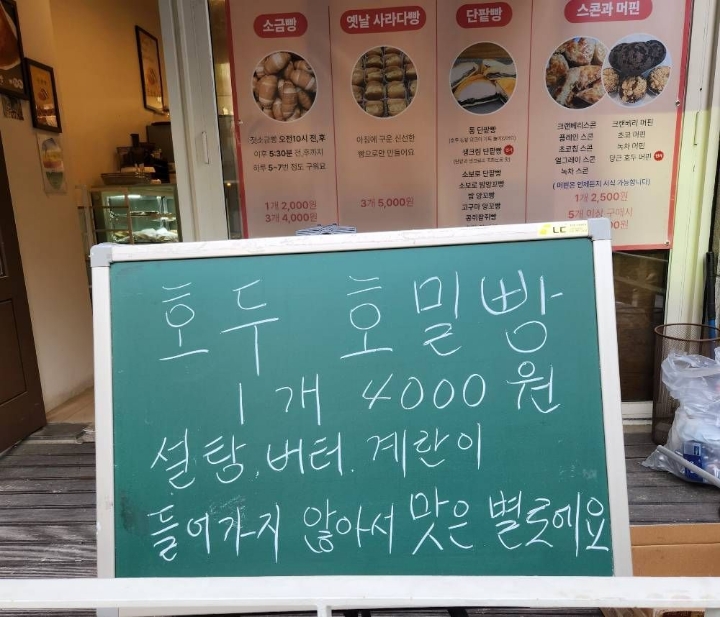 소금빵
옛날 사라다빵
단팥빵
스콘과 머핀
갓소금빵 오전10시 전,후
이후 5:30분 전,후까지
하루 5~7번 정도 구워요
1개 2,000원
3개 4,000원
아침에 구운 신선한
빵으로만 만들어요
3개 5,000원
통 단팥빵
생크림 단팥빵
소보로 단팥빵
소보로 밤앙꼬빵
밤 앙꼬빵
고구마 앙꼬빵
크랜베리스콘
플레인 스콘
초코칩 스콘
얼그레이 스콘
녹차 스콘
크랜베리 머핀
초코 머핀
녹차 머핀
당근 호두 머핀
( 머핀은 언제든지 시식 가능합니다 )
1개 2,500원
5개 이상 구매시
LC
호두 호밀빵
1개 4000원
설탕, 버터, 계란이
들어가지 않아서 맛은 별로에요